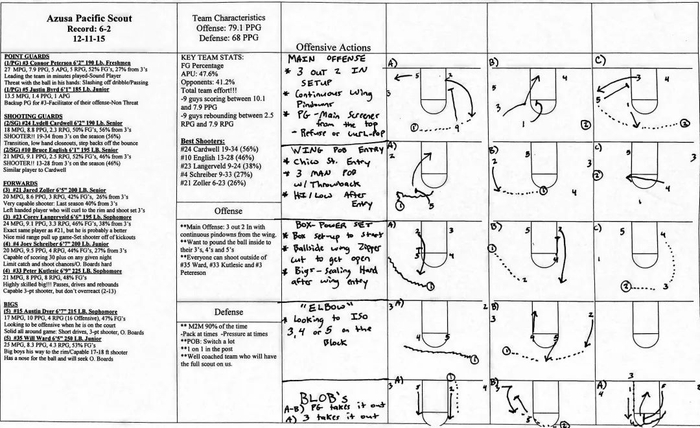 Azusa Pacific Scout
Record: 6-2
12-11-15
POINT GUARDS
(1/PG) #3 Connor Peterson 6'2" 190 Lb. Freshmen
27 MPG, 7.9 PPG, 5 APG, 5 RPG, 52% FG's, 27% from 3's
Leading the team in minutes played-Sound Player
Threat with the ball in his hands: Slashing off dribble/Passing
(1/PG) #5 Justin Byrd 6'1" 185 Lb. Junior
13.5 MPG, 1.4 PPG, 1 APG
Backup PG for #3-Facilitator of their offense-Non Threat
SHOOTING GUARDS
(2/SG) #24 Lydell Cardwell 6'2" 190 Lb. Senior
18 MPG, 8.8 PPG, 2.3 RPG, 50% FG's, 56% from 3's
SHOOTER!! 19-34 from 3's on the season (56%)
Transition, low hand closeouts, step backs off the bounce
(2/SG) #10 Bruce English 6'1" 195 Lb. Senior
21 MPG, 9.1 PPG, 2.5 RPG, 52% FG's, 46% from 3's
SHOOTER!! 13-28 from 3's on the season (46%)
Similar player to Cardwell
FORWARDS
(3) #21 Jared Zoller 6'5" 200 LB. Senior
20 MPG, 8.6 PPG, 3 RPG, 42% FG's, 26% from 3's
Very capable shooter: Last season 40% from 3's
Left handed player who will curl to the rim and shoot set 3's
(3) #23 Corey Langerveld 6'6" 195 Lb. Sophomore
24 MPG, 9.1 PPG, 3.3 RPG, 46% FG's, 38% from 3's
Exact same player as #21, but he is probably a better
Nice mid range pull up game-Set shooter off of kickouts
(4) #4 Joey Schreiber 6'7" 200 Lb. Junior
20 MPG, 9.5 PPG, 4 RPG, 44% FG's, 27% from 3's
Capable of scoring 30 plus on any given night
Limit catch and shoot chances/O. Boards hard
(4) #33 Peter Kutlesic 6'9" 225 LB. Sophomore
21 MPG, 8 PPG, 8 RPG, 48% FG's
Highly skilled big!!! Passes, drives and rebounds
Capable 3-pt shooter, but don't overreact (2-13)
BIGS
(5) #15 Austin Dyer 6'7" 215 LB. Sophomore
17 MPG, 10 PPG, 4 RPG (16 Offensive), 47% FG's
Looking to be offensive when he is on the court
Solid all around game: Short drives, 3-pt shooter, O. Boards
(5) #35 Will Ward 6'5" 250 LB. Junior
25 MPG, 8.3 PPG, 4.3 RPG, 53% FG's
Big boys his way to the rim/Capable 17-18 ft shooter
Has a nose for the ball and will seek O. Boards
Team Characteristics
Offense: 79.1 PPG
Defense: 68 PPG
KEY TEAM STATS:
FG Percentage
APU: 47.6%
Opponents: 41.2%
Total team effort!!!
-9 guys scoring between 10.1
and 7.9 PPG
-9 guys rebounding between 2.5
RPG and 7.9 RPG
Best Shooters:
#24 Cardwell 19-34 (56%)
#10 English 13-28 (46%)
#23 Langerveld 9-24 (38%)
#4 Schreiber 9-33 (27%)
#21 Zoller 6-23 (26%)
Offense
**Main Offense: 3 out 2 In with
continuous pindowns from the wing.
**Want to pound the ball inside to
their 3's, 4's and 5's
**Everyone can shoot outside of
#35 Ward, #33 Kutlesic and #3
Peterson
Defense
** M2M 90% of the time
-Pack at times -Pressure at times
**POB: Switch a lot
** 1 on 1 in the post
**Well coached team who will have
the full scout on us.
Offensive Actions
MAIN OFFENSE
* 3 OUT 2 IN
SETUP
* Continuous Wing
Pindowns
* PG - Main Screener
from the top
- Refuse or curl-pop
WING POB ENTRY
* Chico St. Entry
* 3 MAN POB
w/ Throwback
* HI/LOW After
Entry
BOX-POWER SET
* Box setup to start
* Ballside wing Zipper
cut to get open
* Bigs - sealing Hard
after wing entry
"ELBOW"
* Looking to ISO
3, 4 or 5 on the
Block
BLOB's
A-B) PG takes it out
A) 3 takes it out